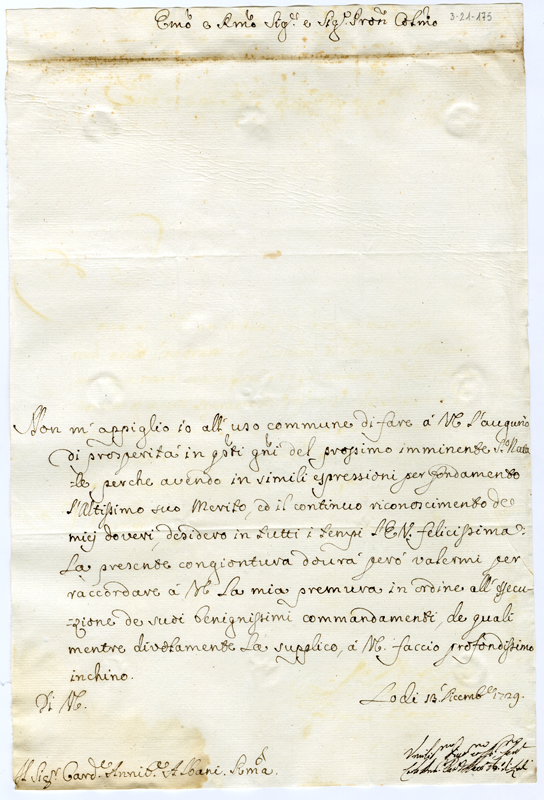 Emo e Rmo Sigre e Sigr Pron Colmo
3-21-175
Non m'appiglio io all'uso commune di fare á VE l'augurio
di prosperitá in qsti gni del prossimo imminente Sto Nata-
-le, perche avendo in simili espressioni per fondamento
l'Altissimo suo Merito, ed il continuo riconoscimento de
miej doveri, desidero in tutti i tempi l'E.V. felicissima.
La presente congiontura dourá peró valermi per
raccordare á VE La mia premura in ordine all'essecu-
-zione de suoi benignissimi commandamenti, de quali
mentre divotamente La supplico, á VE. faccio profondissimo
inchino.
Di VE. Lodi 13 Xcembre 1729.
Al Sigr Carde Annible Albani. Roma.